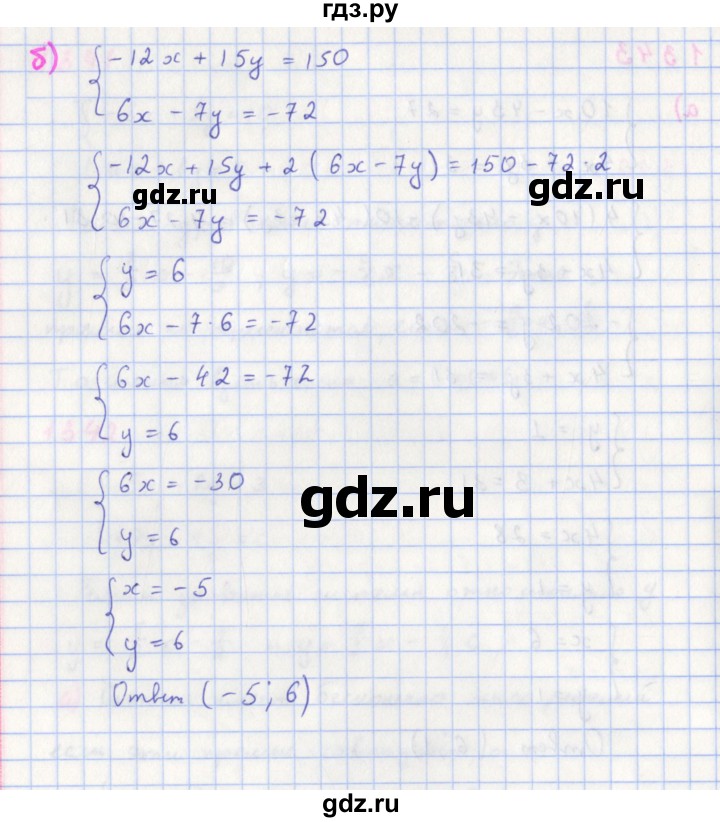 гдз.ру
б) { -12x + 15y = 150
6x - 7y = -72
{ -12x + 15y + 2 ( 6x - 7y ) = 150 - 72 · 2
gdz.ru gdz.ru
6x - 7y = -72
{ y = 6
6x - 7 · 6 = -72
{ 6x - 42 = -72
y = 6
{ 6x = -30
gdz.ru
y = 6
{ x = -5
y = 6
Ответ ( -5 ; 6 )
gdz.ru